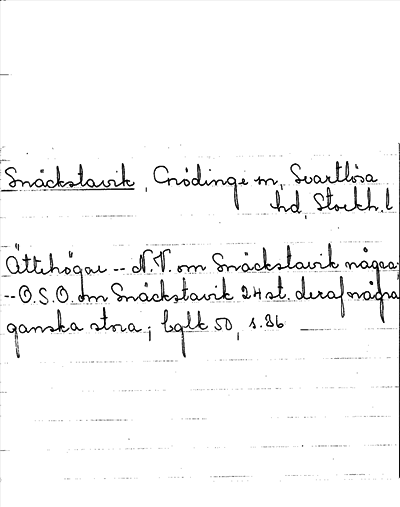 Snäckstavik, Grödinge sn, Svartlösa
hd, Stockh. l
Ättehögar -- N.V. om Snäckstavik några,
-- O.S.O. om Snäckstavik 24 st. deraf några
ganska stora; Eglk 50, s. 36